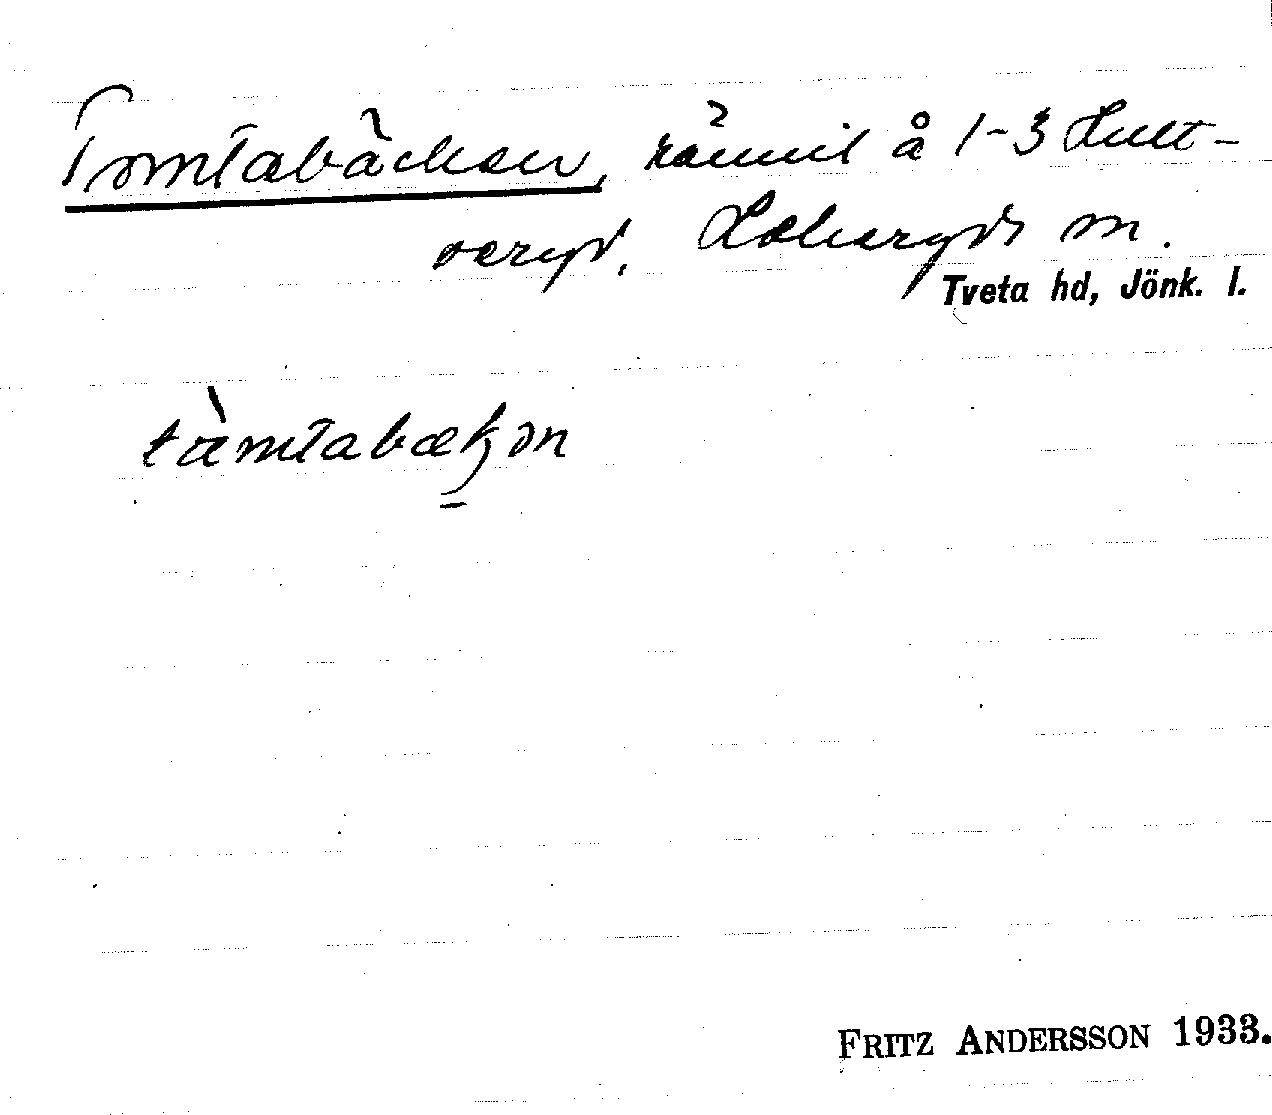 Tomtabäcken, rännil å 1-3 Hult-
seryd. Hakaryds sn.
Tveta hd, Jönk. l.
tàmtabækən
FRITZ ANDERSSON 1933.